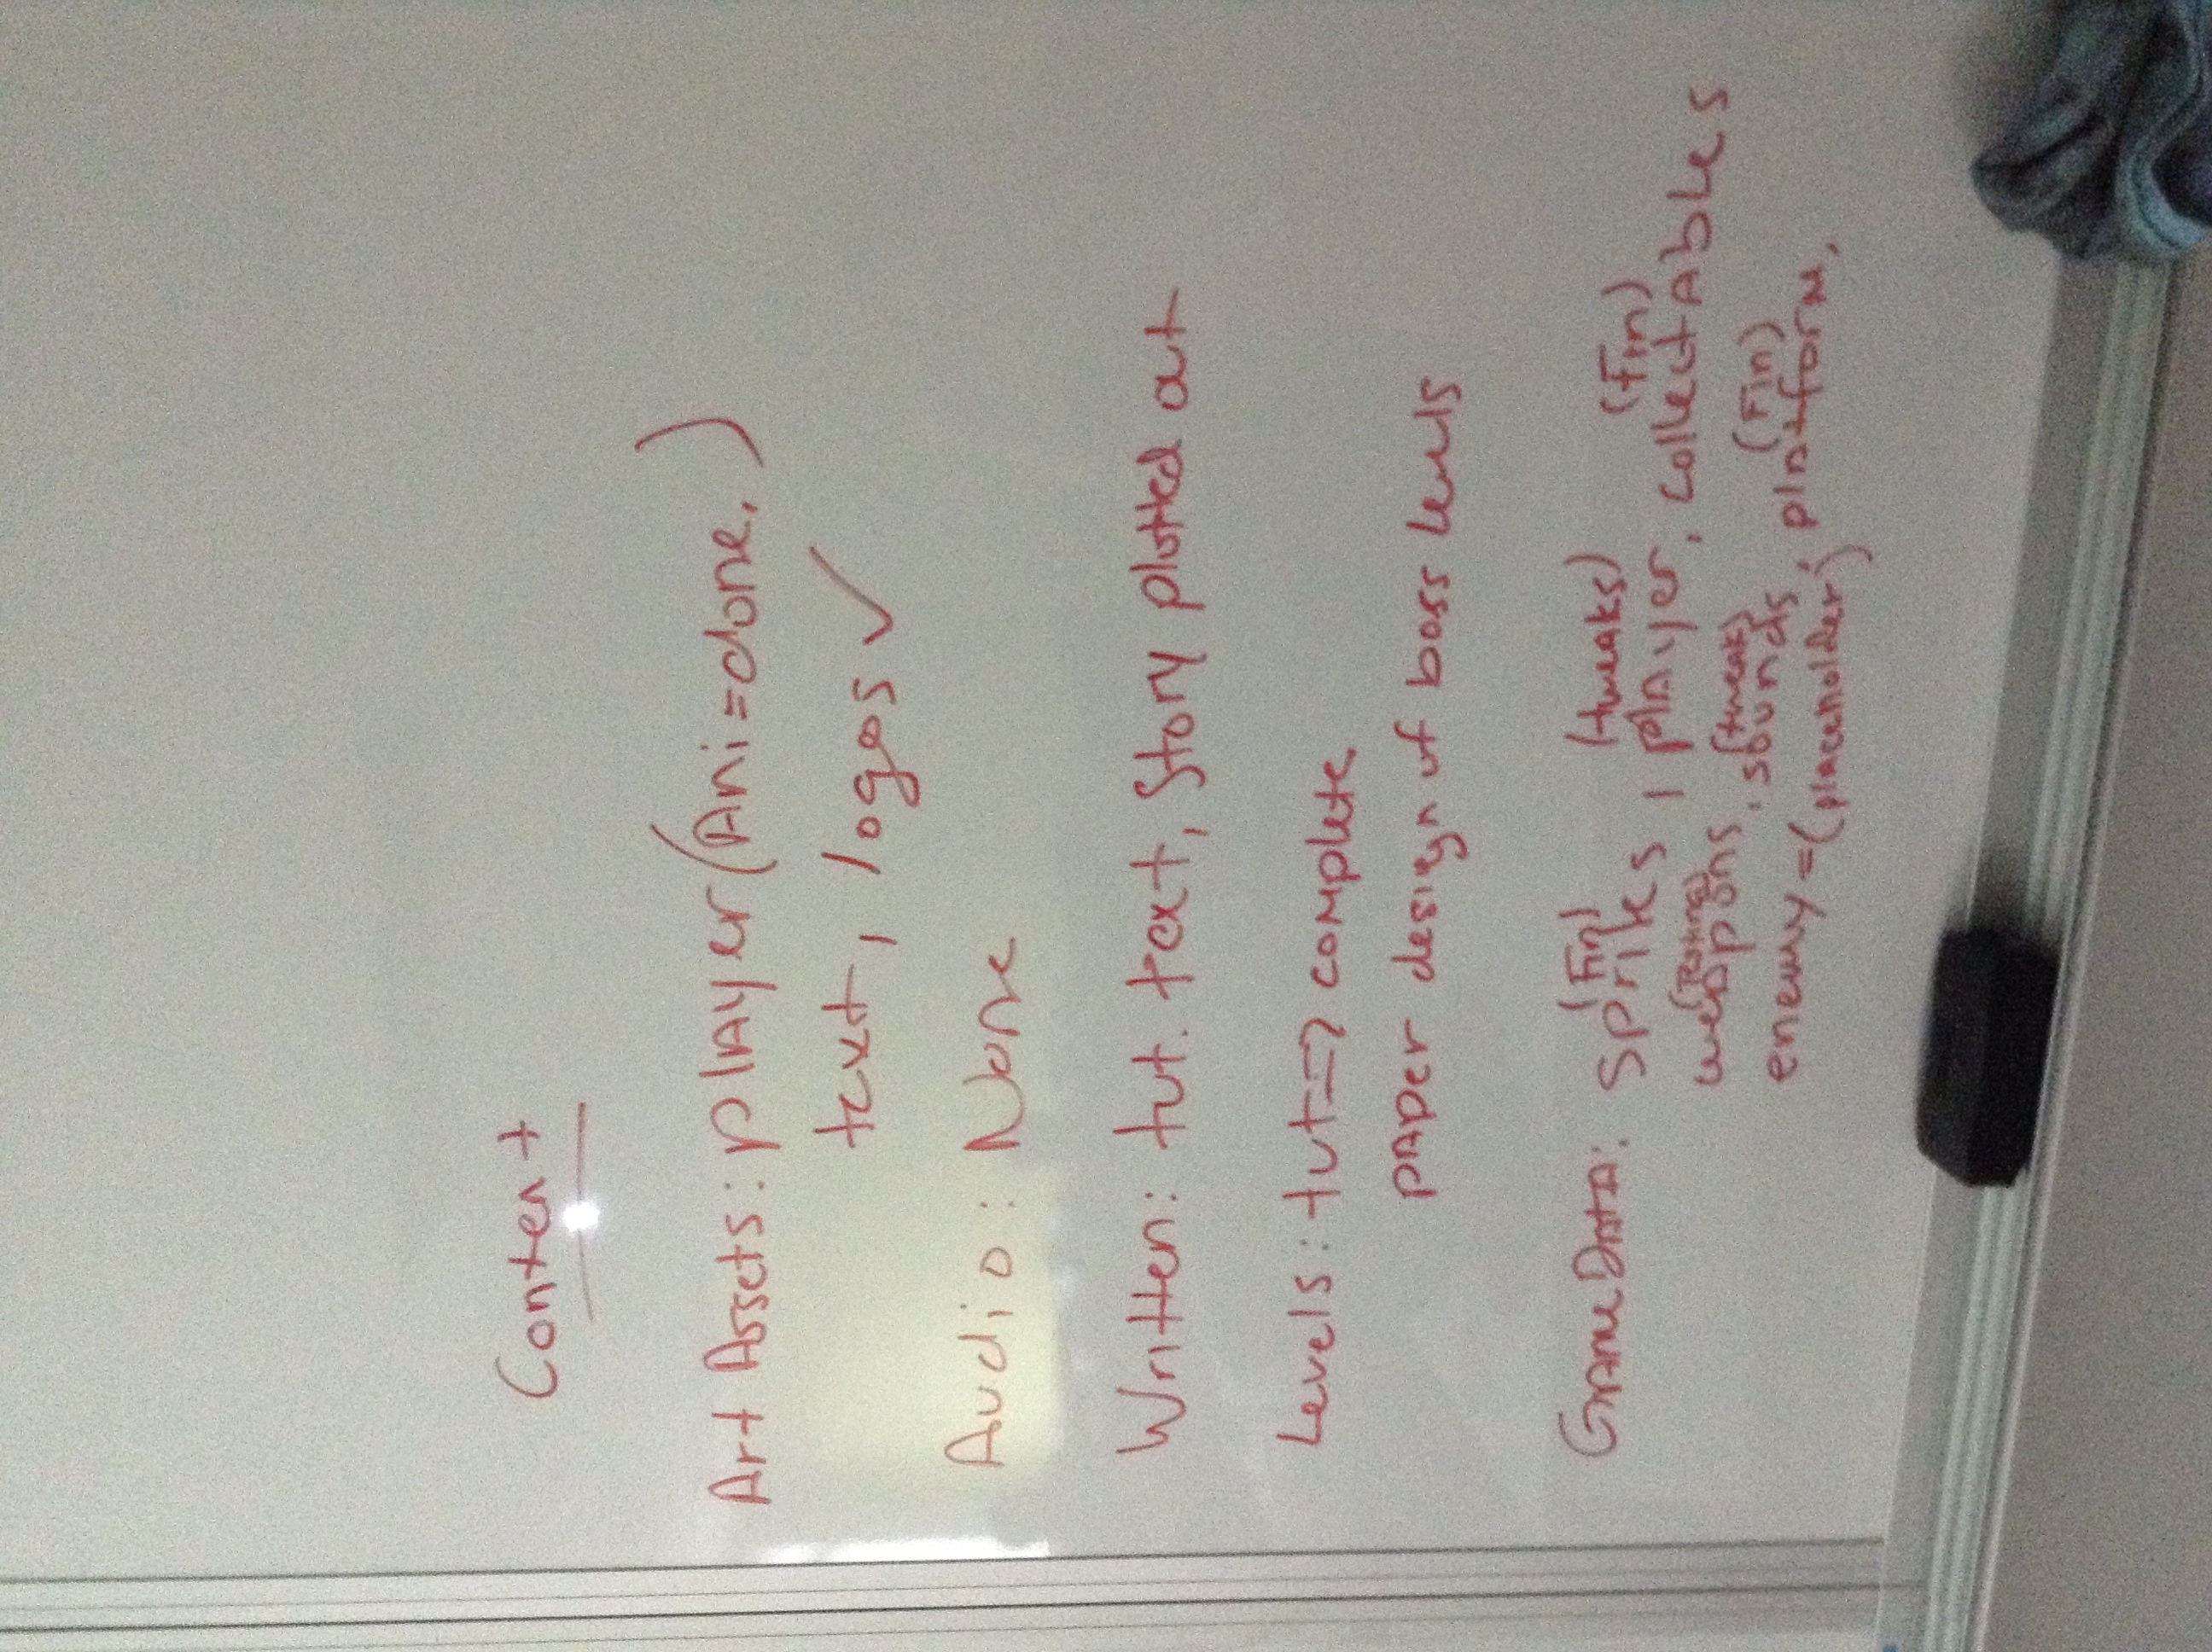 Content
Art Assets: player (Ani=done, )
text, logos ✓
Audio: None
Written: tut. text, Story plotted out
Levels: tut => complete
paper design of boss levels
(Fin) (tweaks) (Fin)
GameData: Sprites, player, collectables
(Testing) (tweak) (Fin)
weapons, sounds, platform,
enemy = (placeholder)